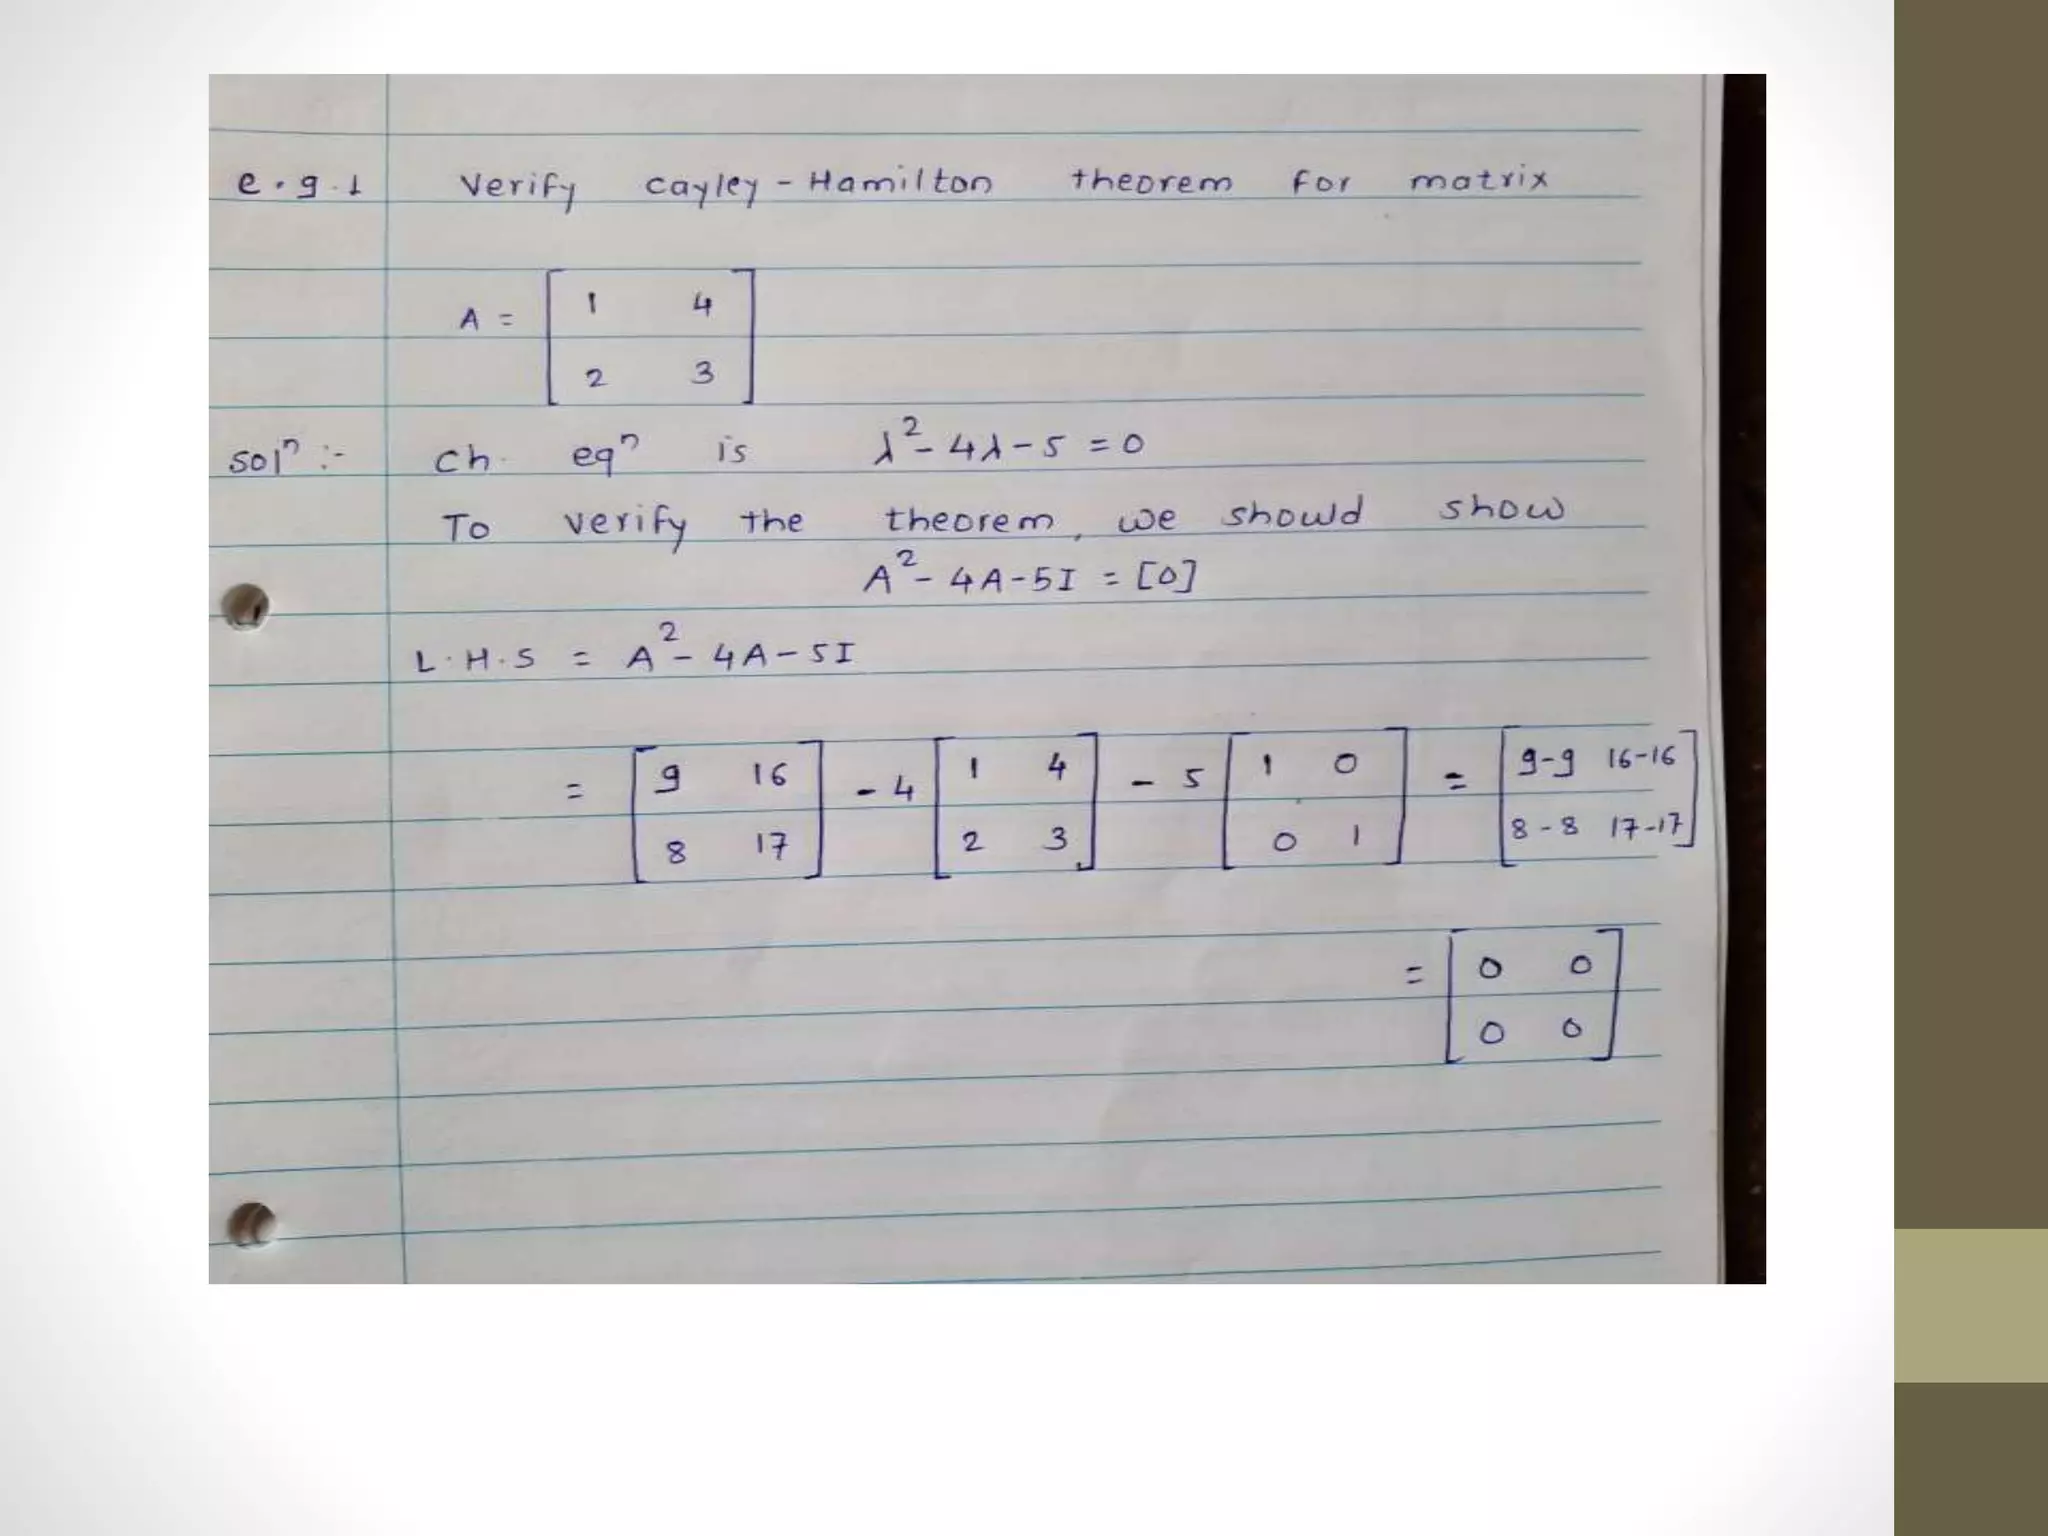 e.g.1 Verify Cayley-Hamilton theorem for matrix
A = [1 4
2 3]
Solⁿ :- Ch. eqⁿ is λ² - 4λ - 5 = 0
To verify the theorem, we should show
A² - 4A - 5I = [0]
L.H.S = A² - 4A - 5I
= [9 16 - 4 [1 4 - 5 [1 0 = [9-9 16-16
8 17] 2 3] 0 1] 8-8 17-17]
= [0 0
0 0]